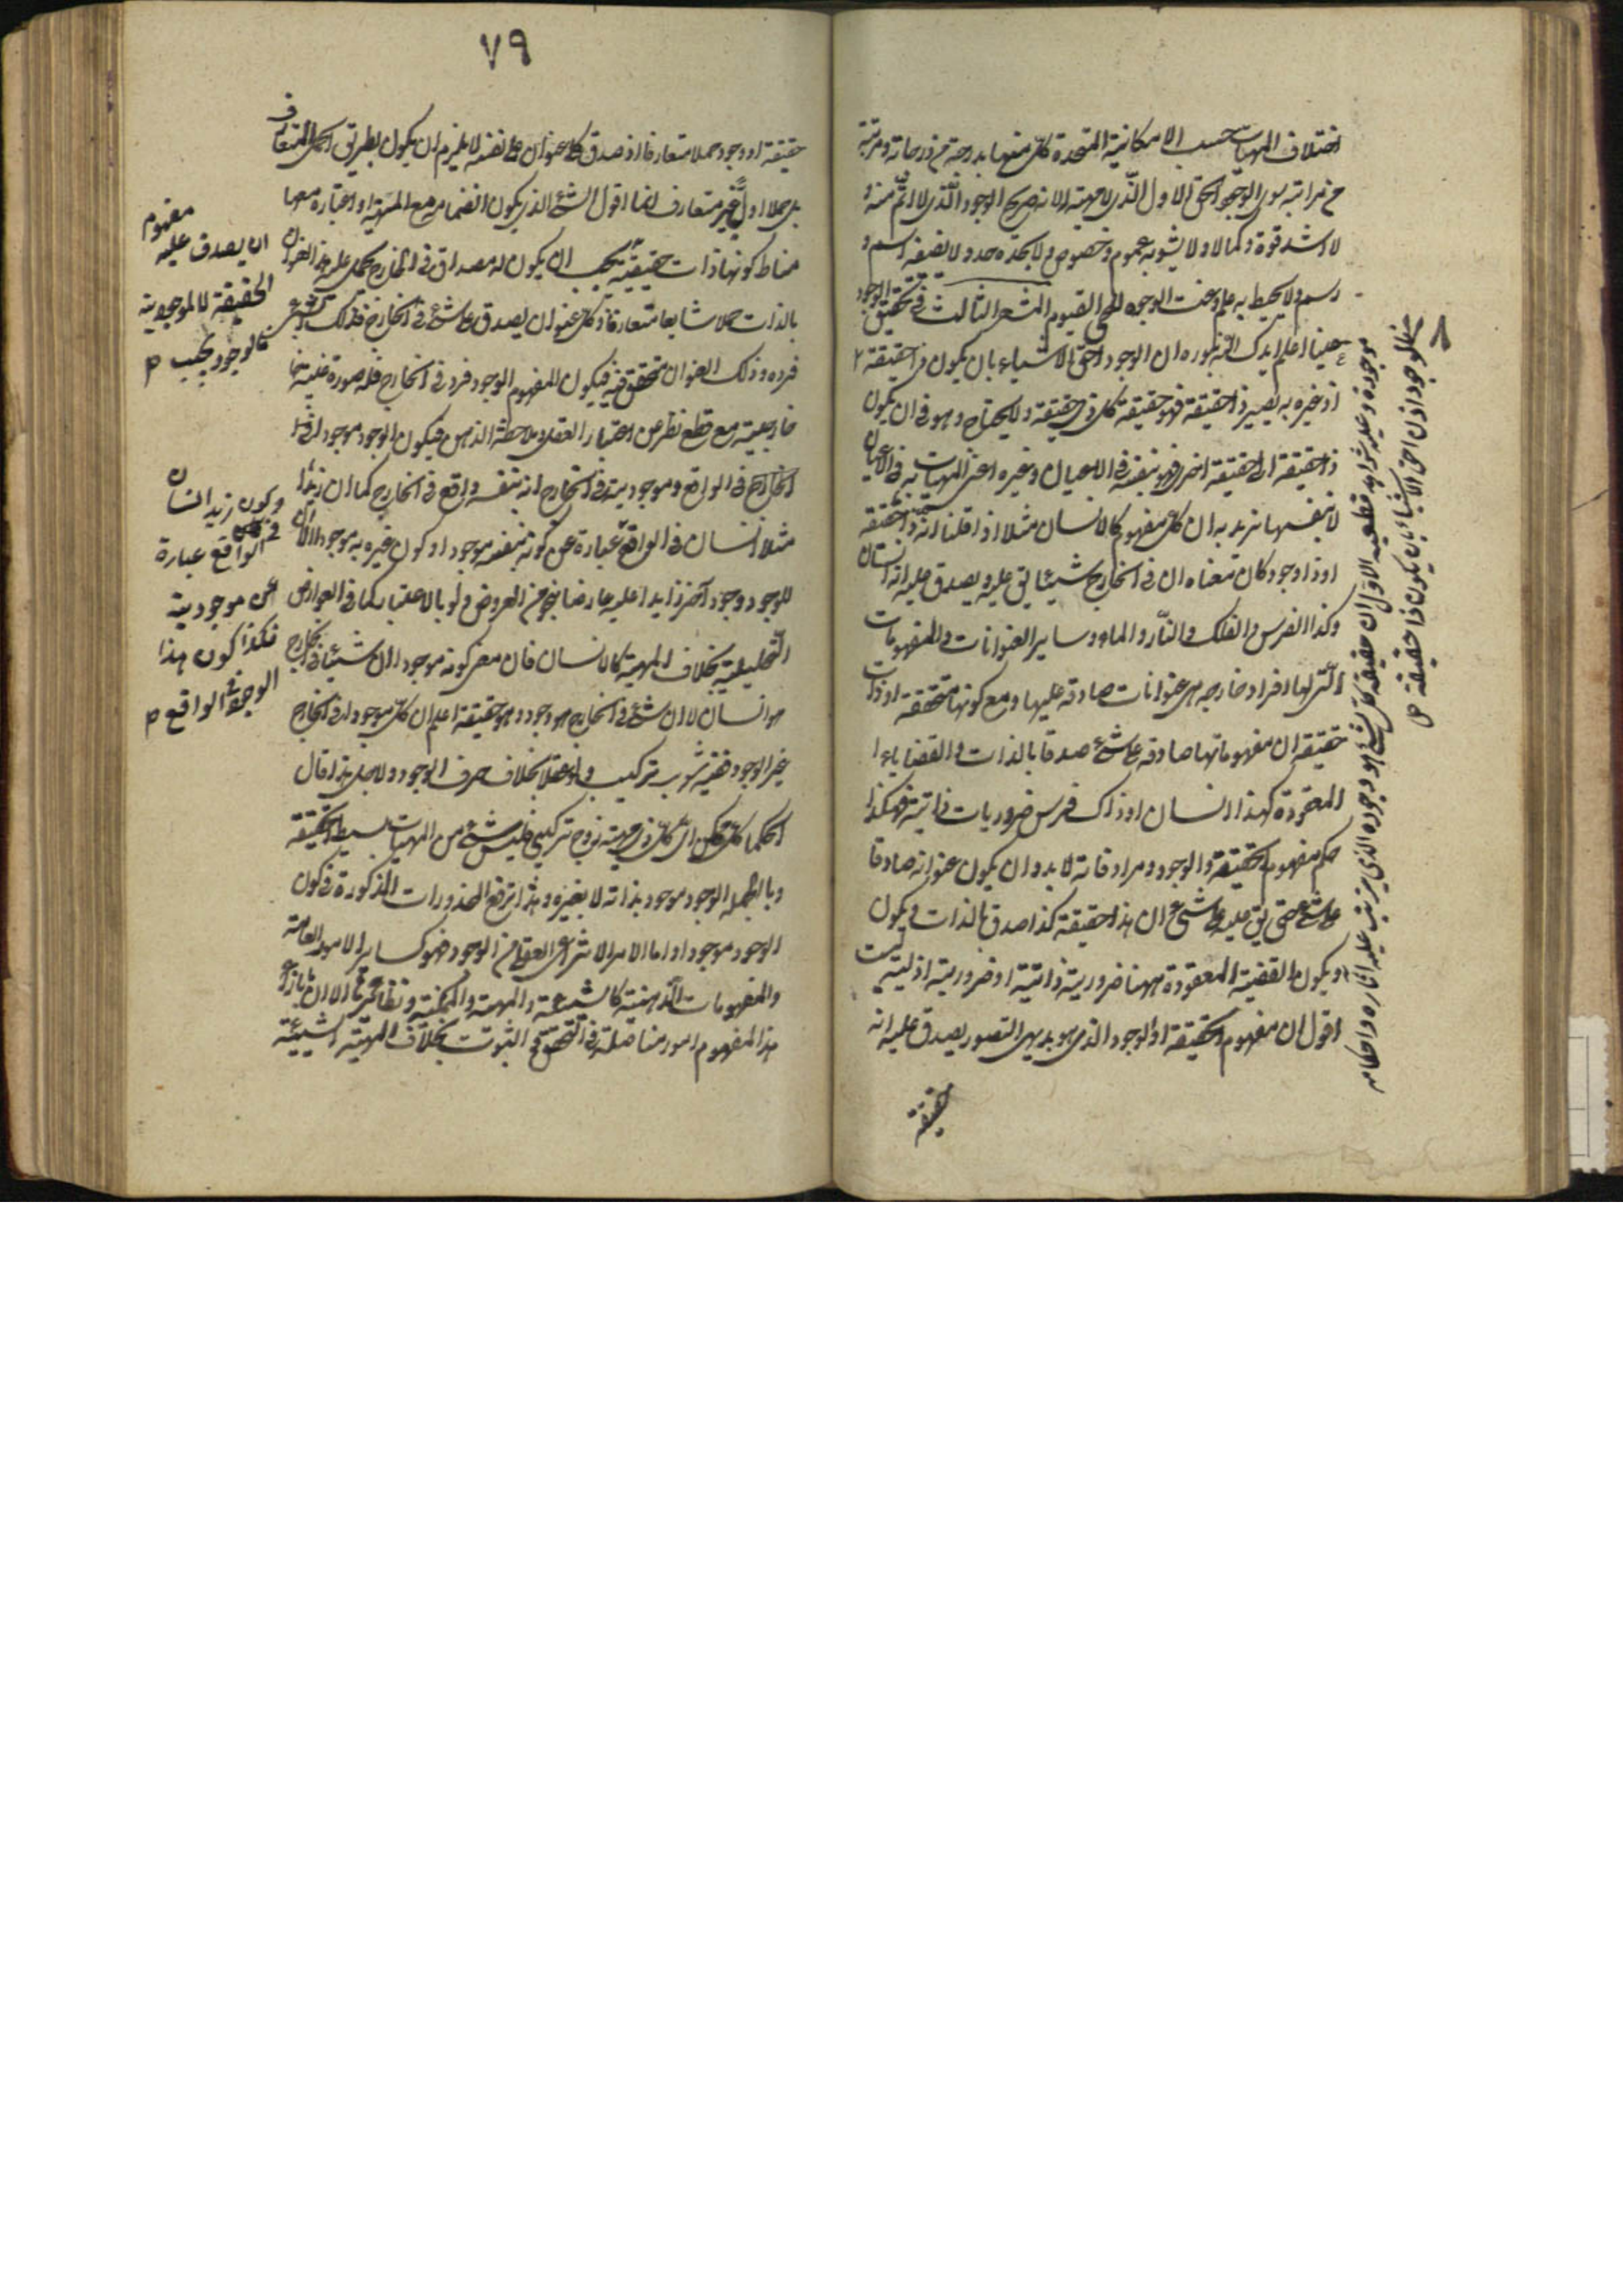 اختلاف المهيات حسب الامكانية المتحدة كل منها بدرجة من درجاته و مرتبة
من مراتبه سوى الوجود الحق الاول الذى لا مهية له لانه صريح الوجود الذى لا اتم منه و
لا اشد قوة و كمالا و لا يشوبه عموم و خصوص و لا يحده حد و لا يضبطه اسم و
رسم و لا يحيط به علم و عنت الوجوه للحى القيوم المشعر الثالث فى تحقيق الوجود
عينا اعلم ايدك الله بنوره ان الوجود احق الاشياء بان يكون ذا حقيقة ٢
اذ غيره به يصير ذا حقيقة فهو حقيقة كل ذى حقيقة و لا يحتاج و هو فى ان يكون
ذا حقيقة الى حقيقة اخرى فهو بنفسه فى الاعيان و غيره اعنى المهيات به فى الاعيان
لا بنفسها نريد به ان كل مفهوم كالانسان مثلا اذا قلنا انه ذا حقيقة
او ذا وجود كان معناه ان فى الخارج شيئا يق عليه و يصدق عليه انه انسان
و كذا الفرس و الفلك و النار و الماء و ساير العنوانات و المفهومات
التى لها افراد خارجيه هى عنوانات صادقه عليها و مع كونها متحققه او ذات
حقيقه ان مفهوماتها صادقه على شئ صدقا بالذات و القضايا
المعقودة كهذا انسان او ذاك فرس ضروريات ذاتية فهكذا
حكم مفهوم الحقيقة و الوجود و مرادفاته لا بد و ان يكون عنوانه صادقا
على شئ حتى يق عليه على شئ ان هذا حقيقة كذا صدقا بالذات و يكون
و يكون القضية المعقودة ههنا ضرورية ذاتية او ضرورية ازلية لست
اقول ان مفهوم الحقيقة او الوجود الذى هو بديهى التصور يصدق عليه انه
حقيقة
موجودة و عليه شواهد قطعيه الاول ان حقيقة كل شئ هو وجوده الذى يترتب عليه آثاره و احكامه
فالوجود اذن احق الاشياء بان يكون ذا حقيقة
٨
٧٩
حقيقة او وجود حملا متعارفا اذ صدق كل عنوان على نفسه لا يلزم ان يكون بطريق الحمل المتعارف
بل حملا اوليا غير متعارف انما اقول الشئ الذى يكون انضمامه مع المهية او اعتباره معها
مناط كونها ذات حقيقية يجب ان يكون له مصداق فى الخارج يحمل عليه هذا العنوان
بالذات حملا شايعا متعارفا و كل عنوان يصدق على شئ فى الخارج فذلك الشئ
فرده و ذلك العنوان متحقق فيه فيكون لمفهوم الوجود فرد فى الخارج فله صورة عينية
خارجية مع قطع نظر عن اعتبار العقل و ملاحظة الذهن فيكون الوجود موجودا فى
الخارج فى الواقع و موجوديته فى الخارج انه بنفسه واقع فى الخارج كما ان زيدا
مثلا انسان فى الواقع عبارة عن كونه بنفسه موجودا و كون غيره به موجودا لا ان
للوجود وجود آخر زايدا عليه عارضا بنحو من العروض و لو بالاعتبار كما فى العوارض
التحليلية بخلاف المهية كالانسان فان معنى كونه موجودا ان شيئا فى الخارج
هو انسان لا ان شئ فى الخارج هو وجود و هو حقيقة اعلم ان كل موجود فى الخارج
غير الوجود ففيه شوب تركيب و لو عقلا بخلاف صرف الوجود و لاجل هذا قال
الحكما كل ممكن اى كل ذى مهية زوج تركيبى فليس شئ من المهيات بسيط الحقيقة
و بالجمله الوجود موجود بذاته لا بغيره و بهذا يرفع المحذورات المذكورة فى كون
الوجود موجودا و اما الامر الانتزاعى العقلى من الوجود فهو كساير الامور العامة
و المفهومات الذهنية كالشيئية و المهية و الممكنية و نظائرها الا ان ما بازاء
هذا المفهوم امور متأصلة فى التحقق و الثبوت بخلاف المهية الشيئية
مفهوم
ان يصدق عليه
الحقيقة لا الموجودية
فالوجود يجب
و كون زيد انسانا
فى الواقع عبارة
عن موجودية
فكذا كون هذا
الوجود فى الواقع